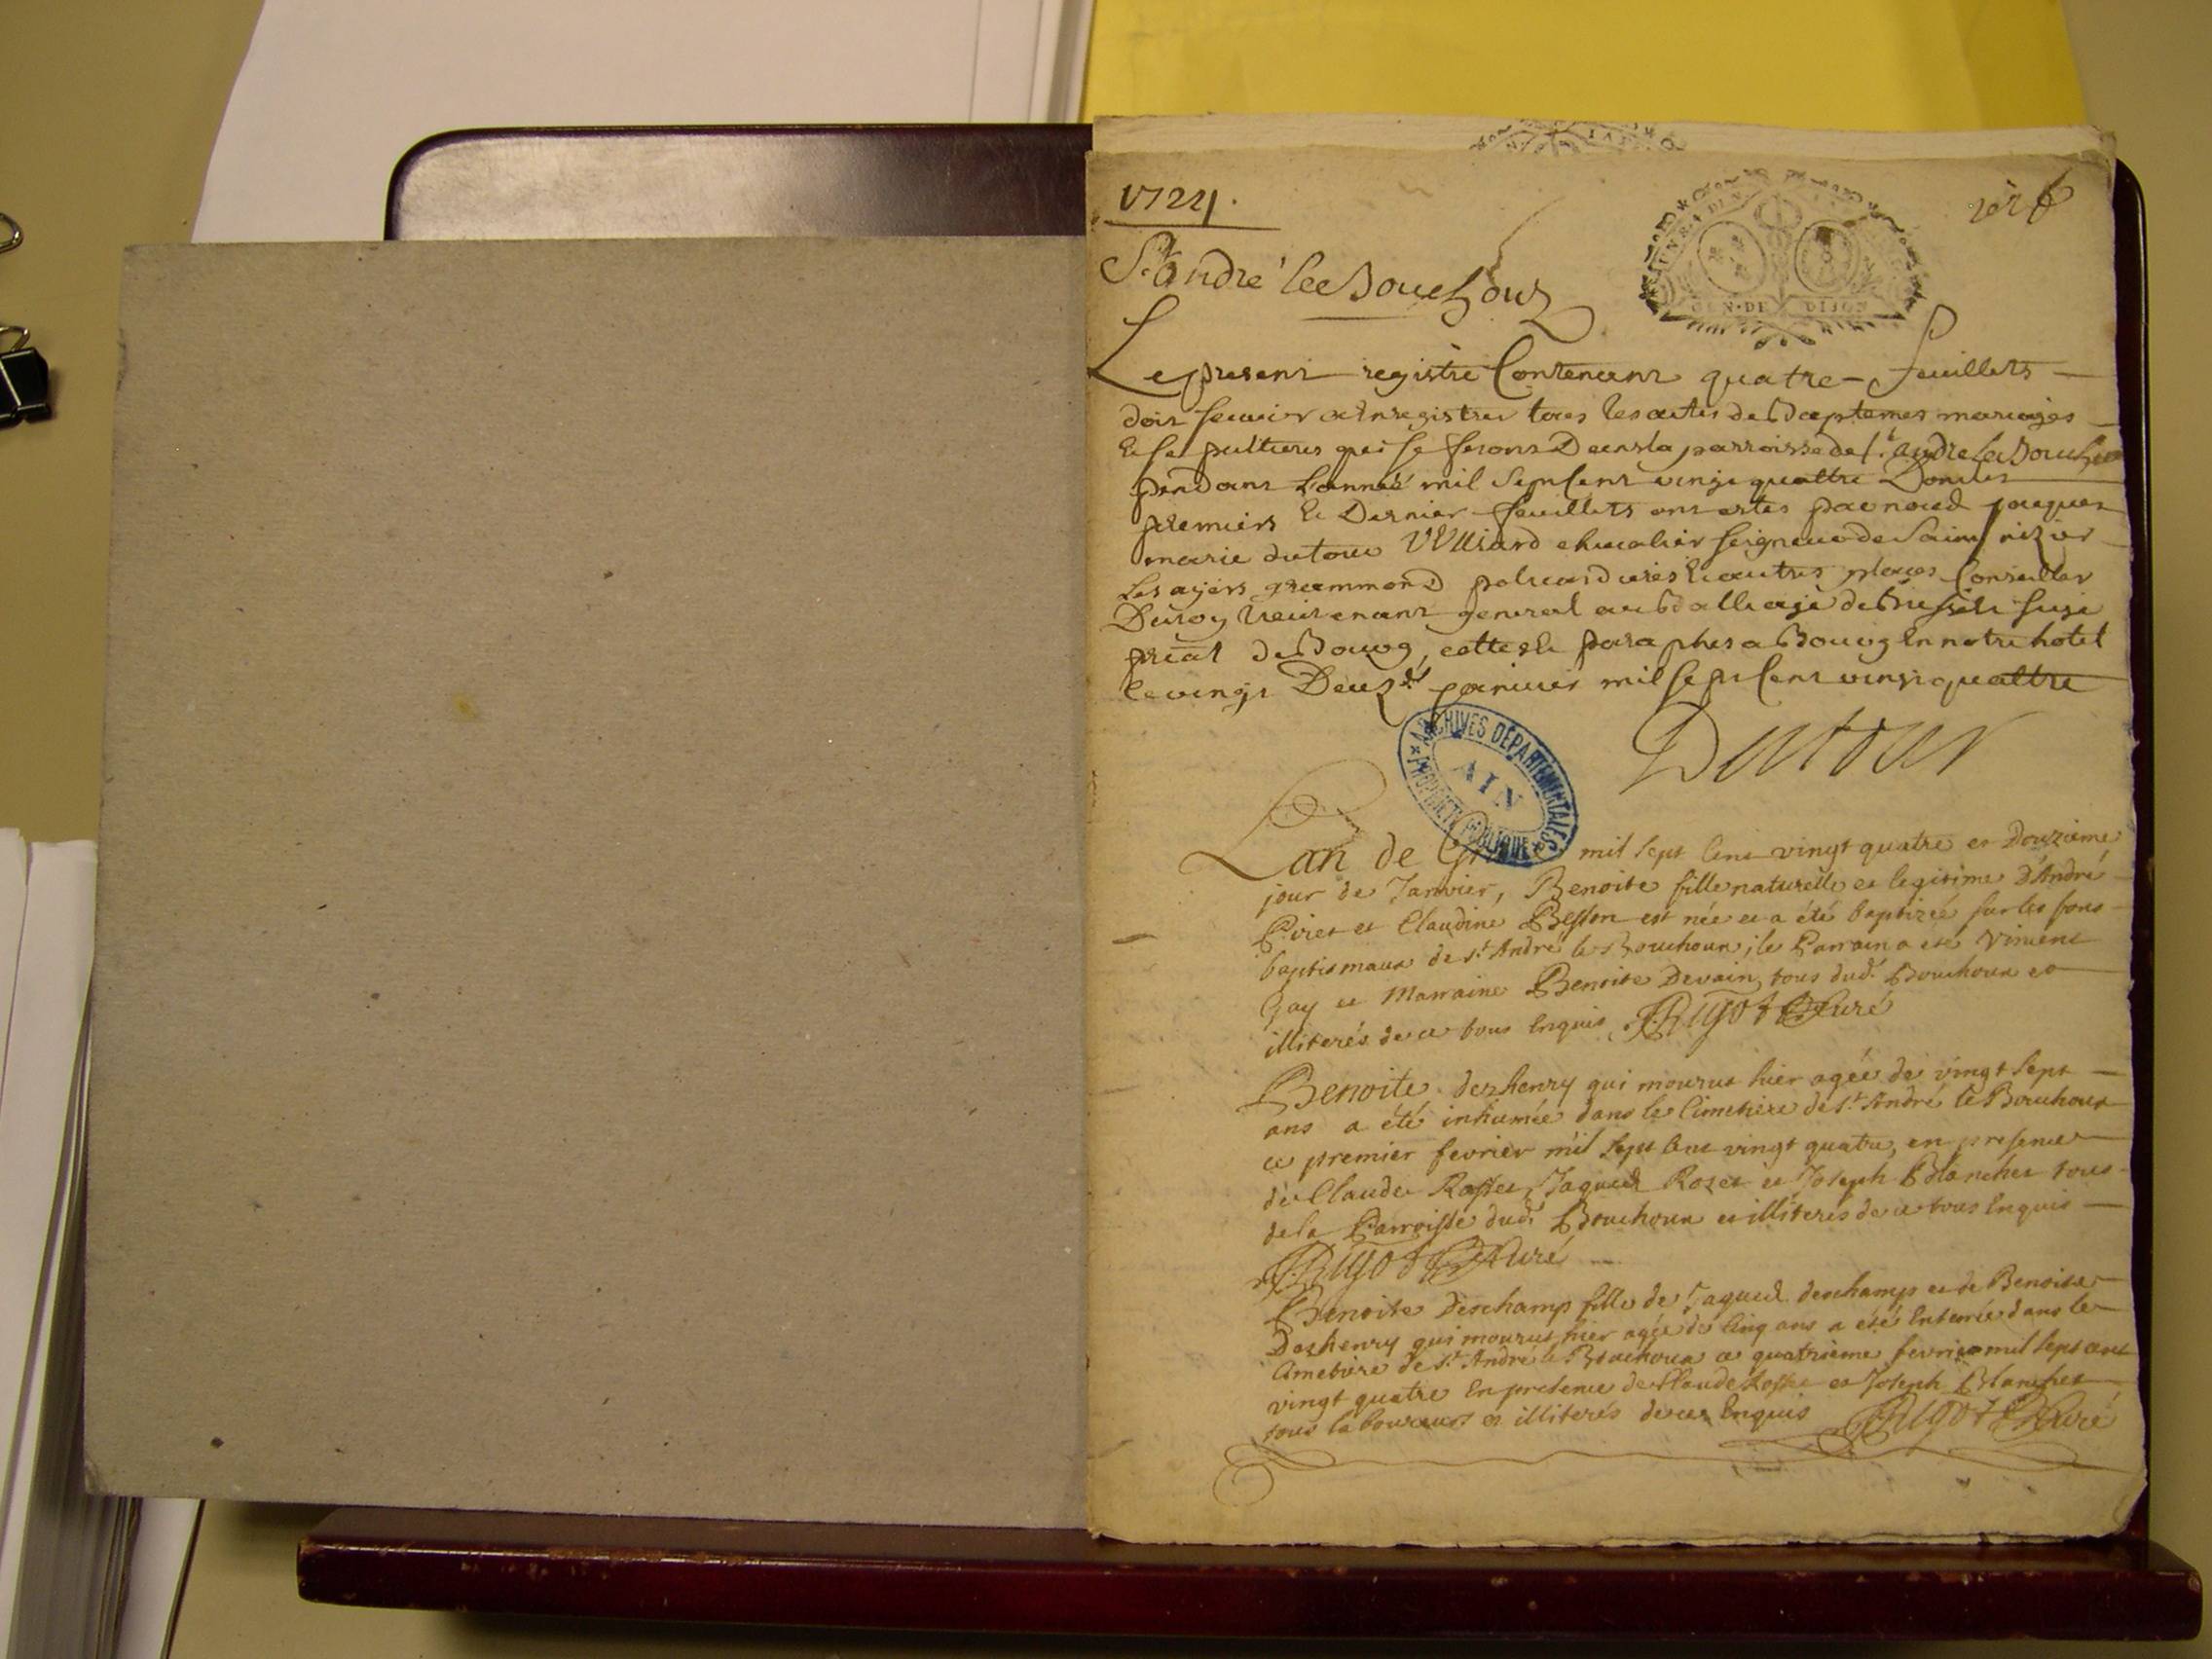 1724.
St André le Bouchoux
GEN·DE DIJON
Le present registre Contenant quatre feuillets
doit servir a Enregistrer tous les actes de Baptemes mariages
Et sepultures qui se feront Dans la parroisse de St André le Bouchoux
pendant L'année mil sept cent vingt quattre Dont les
premiers Et Dernier feuillets ont estés par nous Jacques
marie dutour Vulliard chevalier seigneur de Saint nizier
grammond Et autres places Conseiller
Du roy Lieutenant general au Balliage de Bresse Et siege
de Bourg, cottes Et paraphes a Bourg En notre hotel
le vingt Deux janvier mil sept cent vingt quattre
Dutour
ARCHIVES DÉPARTEMENTALES
AIN
PROPRIÉTÉ PUBLIQUE
Lan de mil sept cent vingt quatre et Douzieme
jour de Janvier, Benoite fille naturelle et legitime d'André
Piret et Claudine Besson est née et a été baptizée sur les fons
baptismaux de st André le Bouchoux; le Parrain a été Vincent
Gay et Marraine Benoite Devain, tous dud. Bouchoux et
illiterés de ce tous Enquis Rugot Curé
Benoite deshenry qui mourut hier agée de vingt sept
ans a été inhumée dans le Cimetiere de st André le Bouchoux
ce premier fevrier mil sept cent vingt quatre, en presence
de Claude Rosset, Jaques Rozet et Joseph Blanchet tous
de la Parroisse dud. Bouchoux et illiterés de ce tous Enquis
Rugot Curé
Benoite Deschamp fille de Jaques deschamps et de Benoite
Deshenry qui mourut hier agée de Cinq ans a été Enterrée dans le
Cimetiere de st André le Bouchoux ce quatrieme fevrier mil sept cent
vingt quatre En presence de Claude Rosset et Joseph Blanchet
tous laboureurs et illiterés de ce Enquis Rugot Curé